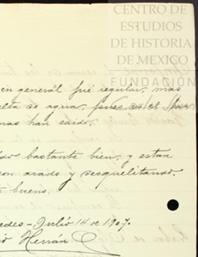 CENTRO DE
ESTUDIOS
DE HISTORIA
DE MEXICO
FUNDACIÓN
en general fué regular, mas
de agua, pues en el
mas han caido.
bastante bien, y estan
con arado y desquelitando.
bueno.
edes - Julio 14 de 1907.
Hernán